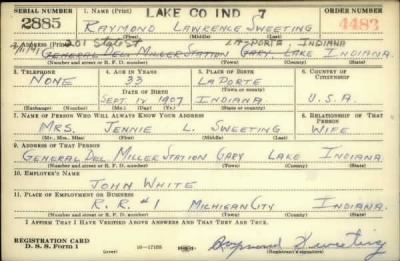 LAKE CO IND 7
SERIAL NUMBER 1. NAME (Print) ORDER NUMBER
2885 RAYMOND LAWRENCE SWEETING 4483
(First) (Middle) (Last)
2. ADDRESS (Print) 201 STATE ST LAPORTE, INDIANA
GENERAL DEL MILLER STATION GARY, LAKE INDIANA
(Number and street or R. F. D. number) (Town) (County) (State)
3. TELEPHONE 4. AGE IN YEARS 5. PLACE OF BIRTH 6. COUNTRY OF CITIZENSHIP
NONE 33 LAPORTE
DATE OF BIRTH (Town or county)
SEPT 17 1907 INDIANA U.S.A.
(Exchange) (Number) (Mo.) (Day) (Yr.) (State or country)
7. NAME OF PERSON WHO WILL ALWAYS KNOW YOUR ADDRESS 8. RELATIONSHIP OF THAT PERSON
MRS. JENNIE L. SWEETING WIFE
(Mr., Mrs., Miss) (First) (Middle) (Last)
9. ADDRESS OF THAT PERSON
GENERAL DEL MILLER STATION GARY LAKE INDIANA
(Number and street or R. F. D. number) (Town) (County) (State)
10. EMPLOYER'S NAME
JOHN WHITE
11. PLACE OF EMPLOYMENT OR BUSINESS
R. R. #1 MICHIGAN CITY INDIANA
(Number and street or R. F. D. number) (Town) (County) (State)
I AFFIRM THAT I HAVE VERIFIED ABOVE ANSWERS AND THAT THEY ARE TRUE.
REGISTRATION CARD
D. S. S. Form 1 16—17105 Raymond Sweeting
(Registrant's signature)